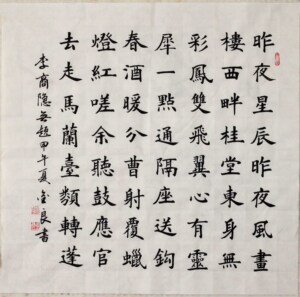 昨夜星辰昨夜風畫
樓西畔桂堂東身無
彩鳳雙飛翼心有靈
犀一點通隔座送鈎
春酒暖分曹射覆蠟
燈紅嗟余聽鼓應官
去走馬蘭臺類轉蓬
李商隐無題甲午夏金良書